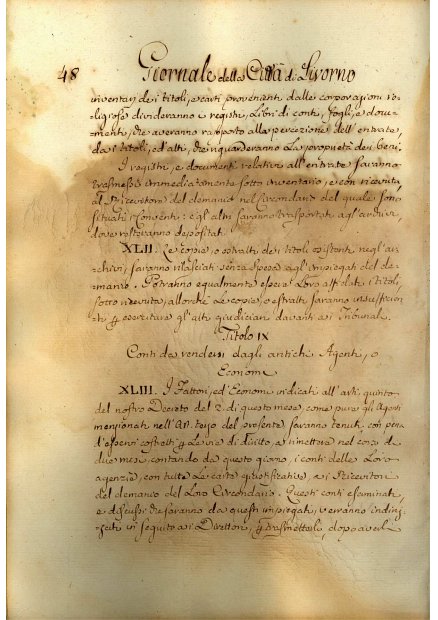 48 Giornale della Città di Livorno
inventarj dei titoli, e carti provenienti dalle corporazioni re-
ligiose divideranno i registri, Libri di conti, fogli, e docu-
menti, che averanno rapporto alla percezione dell'entrate,
da i titoli, ed'atti, che riguarderanno la proprietà dei beni.
I registri, e documenti relativi all'entrate saranno
trasmessi immediatamente sotto inventario, e con ricevuta,
al Ricevitore del demanio nel circondario del quale sono
situati i conventi: e gl'altri saranno trasportati agl'archivi,
dove resteranno depositati.
XLII. Le copie, o estratti dei titoli esistenti negl'ar-
chivi, saranno rilasciati senza spesa agl'impiegati del de-
manio. Potranno equalmente essere Loro affidati i titoli,
sotto ricevuta, allorchè Le copie, o estratti saranno insufficien-
ti p esercitare gl'atti giudiciari davanti ai Tribunali.
Titolo IX
Conti da rendersi dagli antichi Agenti, o
Economi
XLIII. I Fattori, ed'Economi indicati all'arti. quinto
del nostro Decreto del 2. di questo mese, come pure gli Agenti
menzionati nell'Art. terzo del presente saranno tenuti, con pena
d'esservi costretti p Le vie di diritto, a rimettere nel corso di
due mesi, contando da questo giorno, i conti delle Loro
agenzie, con tutte Le carte giustificative, ai Ricevitori
del demanio del Loro Circondario. Questi conti esaminati,
e discussi che saranno da questi impiegati, verranno indiriz-
zati in seguito ai Direttori, p trasmetterli, dopo averli